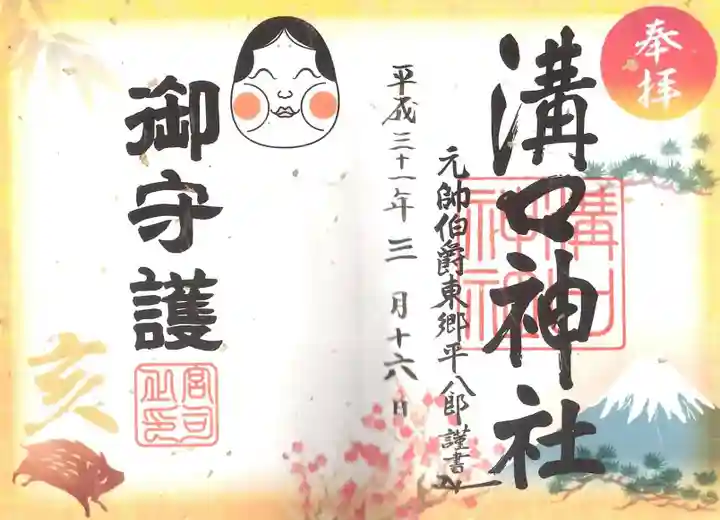 奉拝
溝口神社
溝口神社
元帥伯爵東郷平八郎謹書
平成三十一年三月十六日
御守護
宮司之印
亥